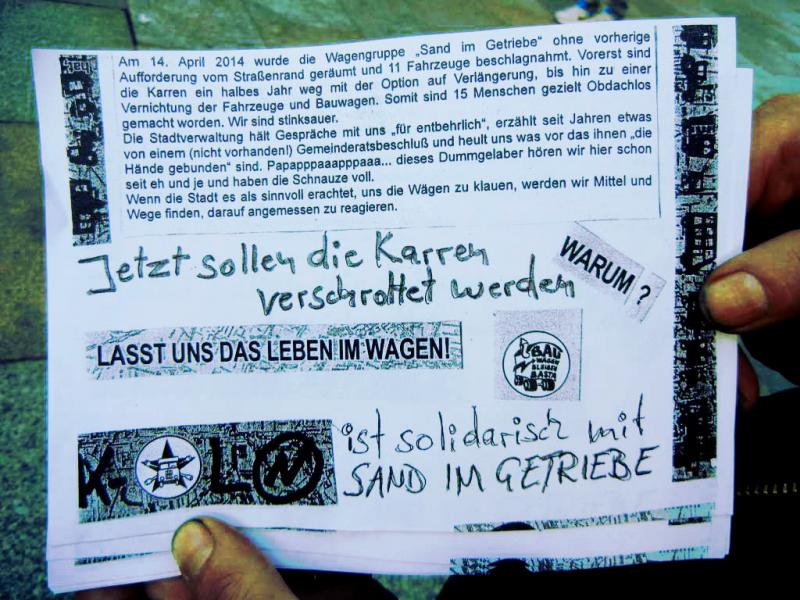 Am 14. April 2014 wurde die Wagengruppe „Sand im Getriebe“ ohne vorherige
Aufforderung vom Straßenrand geräumt und 11 Fahrzeuge beschlagnahmt. Vorerst sind
die Karren ein halbes Jahr weg mit der Option auf Verlängerung, bis hin zu einer
Vernichtung der Fahrzeuge und Bauwagen. Somit sind 15 Menschen gezielt Obdachlos
gemacht worden. Wir sind stinksauer.
Die Stadtverwaltung hält Gespräche mit uns „für entbehrlich“, erzählt seit Jahren etwas
von einem (nicht vorhanden!) Gemeinderatsbeschluß und heult uns was vor das ihnen „die
Hände gebunden“ sind. Papapppaaapppaaa... dieses Dummgelaber hören wir hier schon
seit eh und je und haben die Schnauze voll.
Wenn die Stadt es als sinnvoll erachtet, uns die Wägen zu klauen, werden wir Mittel und
Wege finden, darauf angemessen zu reagieren.
Jetzt sollen die Karren
verschrottet werden
WARUM ?
LASST UNS DAS LEBEN IM WAGEN!
BAU
WAGEN
BLEIBEN
BASTA
ist solidarisch mit
SAND IM GETRIEBE